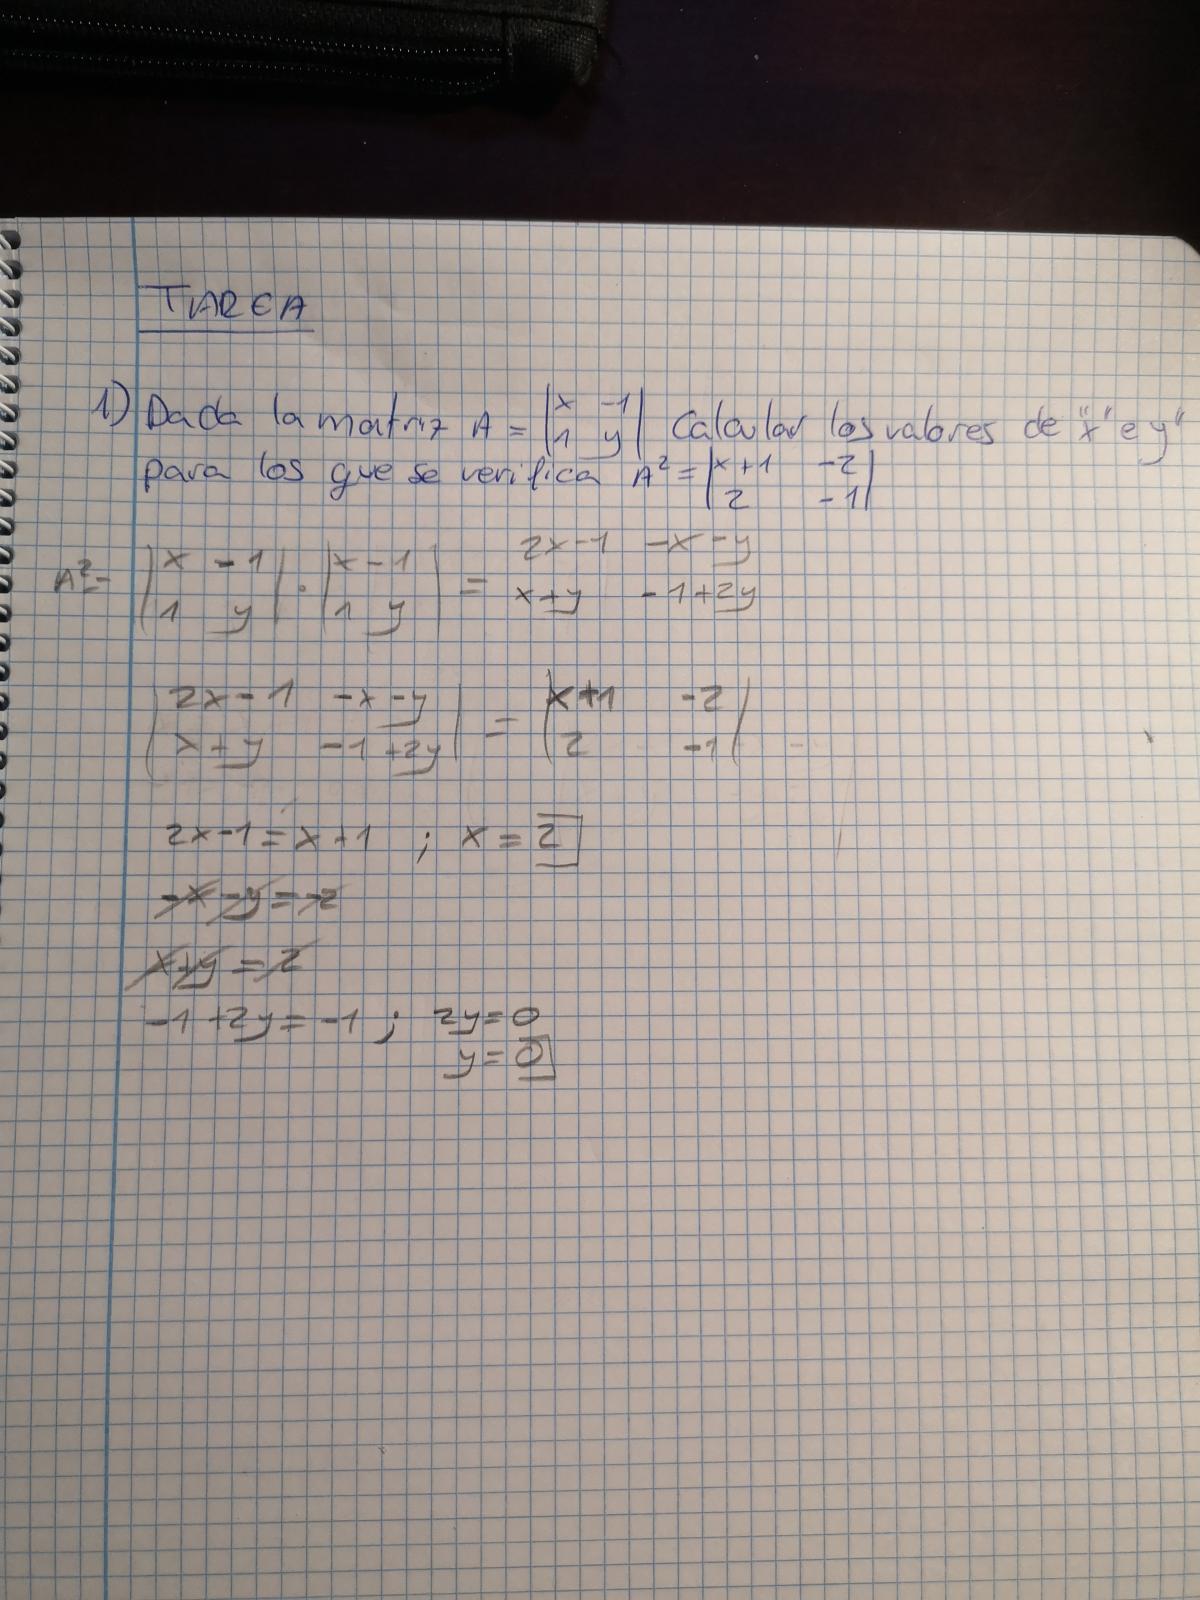 TAREA
1) Dada la matriz A = |x -1| Calcular los valores de "x" e y"
|1 y|
para los que se verifica A² = |x+1 -2|
|2 -1|
A²= |x -1| · |x -1| = 2x-1 -x-y
|1 y| |1 y| x+y -1+2y
|2x-1 -x-y| = |x+1 -2|
|x+y -1+2y| |2 -1|
2x-1=x+1 ; x = 2
-x-y=-2
x+y=2
-1+2y=-1 ; 2y=0
y=0